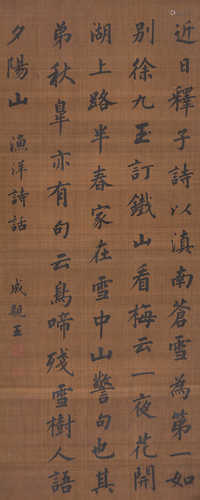 近日釋子詩以滇南蒼雪為第一如
別徐九玉訂鐵山看梅云一夜花開
湖上路半春家在雪中山警句也其
弟秋皐亦有句云鳥啼殘雪樹人語
夕陽山 漁洋詩話 成親王